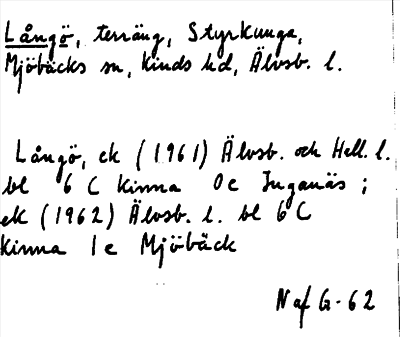 Långö, terräng, Styrkunga,
Mjöbäcks sn, Kinds hd, Älvsb. l.
Långö, ek (1961) Älvsb. och Hall. l.
bl 6 C Kinna 0 e Inganäs ;
ek (1962) Älvsb. l. bl 6 C
Kinna 1 e Mjöbäck
N af G-62